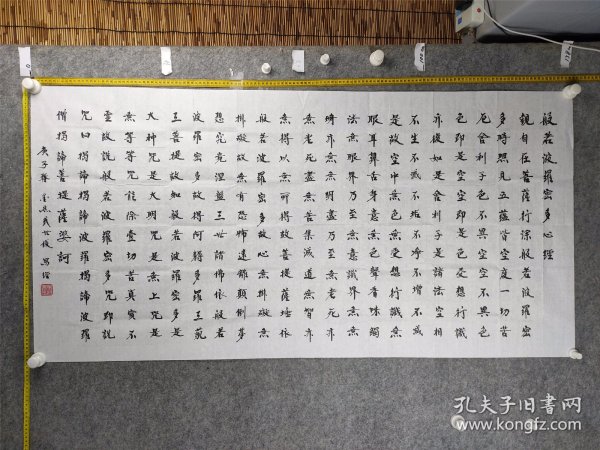 般若波羅蜜多心經
觀自在菩薩行深般若波羅蜜
多時照見五蘊皆空度一切苦
厄舍利子色不異空空不異色
色即是空空即是色受想行識
亦復如是舍利子是諸法空相
不生不滅不垢不淨不增不減
是故空中無色無受想行識無
眼耳鼻舌身意無色聲香味觸
法無眼界乃至無意識界無無
明亦無無明盡乃至無老死亦
無老死盡無苦集滅道無智亦
無得以無所得故菩提薩埵依
般若波羅蜜多故心無掛礙無
掛礙故無有恐怖遠離顛倒夢
想究竟涅盤三世諸佛依般若
波羅蜜多故得阿耨多羅三藐
三菩提故知般若波羅蜜多是
大神咒是大明咒是無上咒是
無等等咒能除壹切苦真實不
虛故說般若波羅蜜多咒即說
咒曰揭諦揭諦波羅揭諦波羅
僧揭諦菩提薩婆訶
庚子 寫經
孔夫子旧书网
www.kongfz.com